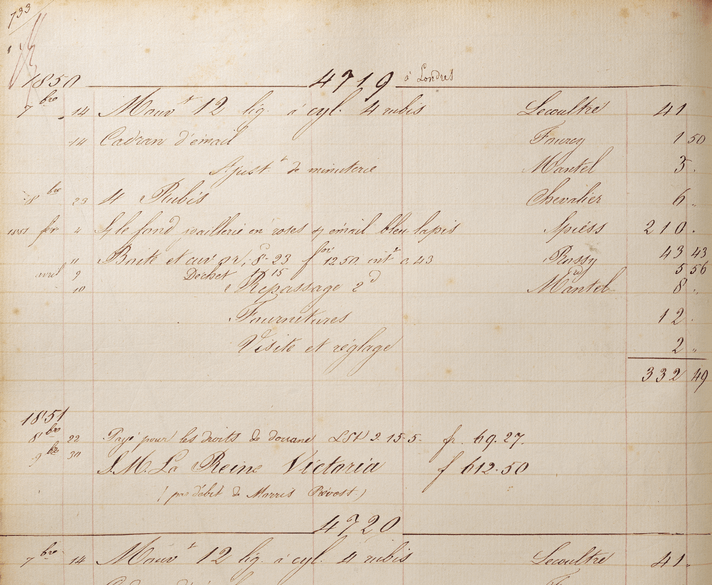 733
1850 4719 à Londres
7bre 14 Mouvt 12 lig. à cyl. 4 rubis Lecoultre 41
14 Cadran d'émail Fourey 1 50
Ajustt de minuterie Mantel 3
8bre 23 4 Rubis Chevalier 6
1851 fr " le fond joaillerie en roses émail bleu lapis Spiess 210
" Boite et cuv. or, 8. 23 f 1250 a 43 43 43
avril 9 Dechet 15 5 56
10 Repassage 2d Mantel 8
Fournitures 12
Visite et réglage 2
332 49
1851
8bre 22 Payé pour les droits de douane LSt 2.15.5. fr. 69.27.
9bre 30 S.M. La Reine Victoria f 612.50
(par débit de Prévost)
4720
7bre 14 Mouvt 12 lig. à cyl. 4 rubis Lecoultre 41